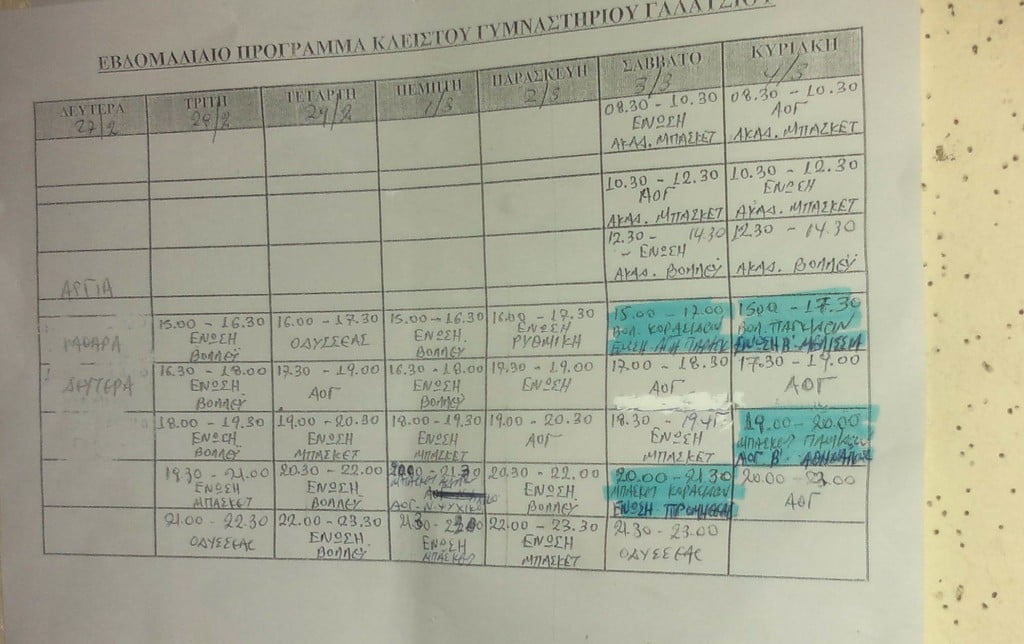 ΕΒΔΟΜΑΔΙΑΙΟ ΠΡΟΓΡΑΜΜΑ ΚΛΕΙΣΤΟΥ ΓΥΜΝΑΣΤΗΡΙΟΥ ΓΑΛΑΤΣΙΟΥ
ΔΕΥΤΕΡΑ ΤΡΙΤΗ ΤΕΤΑΡΤΗ ΠΕΜΠΤΗ ΠΑΡΑΣΚΕΥΗ ΣΑΒΒΑΤΟ ΚΥΡΙΑΚΗ
27/2 28/2 29/2 1/3 2/3 3/3 4/3
08.30 - 10.30 08.30 - 10.30
ΕΝΩΣΗ ΑΟΓ
ΑΚΑΔ. ΜΠΑΣΚΕΤ ΑΚΑΔ. ΜΠΑΣΚΕΤ
10.30 - 12.30 10.30 - 12.30
ΑΟΓ ΕΝΩΣΗ
ΑΚΑΔ. ΜΠΑΣΚΕΤ ΑΚΑΔ. ΜΠΑΣΚΕΤ
12.30 - 14.30 12.30 - 14.30
- ΕΝΩΣΗ
ΑΚΑΔ. ΒΟΛΛΕΫ ΑΚΑΔ. ΒΟΛΛΕΫ
ΑΡΓΙΑ
ΚΑΘΑΡΑ
ΔΕΥΤΕΡΑ
15.00 - 16.30 16.00 - 17.30 15.00 - 16.30 16.00 - 17.30 15.00 - 17.00 15.00 - 17.30
ΕΝΩΣΗ ΟΔΥΣΣΕΑΣ ΕΝΩΣΗ ΕΝΩΣΗ ΒΟΛ. ΚΟΡΑΣΙΔΩΝ ΒΟΛ.
ΒΟΛΛΕΫ ΒΟΛΛΕΫ ΡΥΘΜΙΚΗ ΕΝΩΣΗ ΕΝΩΣΗ Β ΜΕΛΙΣΣΙΑ
16.30 - 18.00 17.30 - 19.00 16.30 - 18.00 17.30 - 19.00 17.00 - 18.30 17.30 - 19.00
ΕΝΩΣΗ ΑΟΓ ΕΝΩΣΗ ΕΝΩΣΗ ΑΟΓ ΑΟΓ
ΒΟΛΛΕΫ ΒΟΛΛΕΫ
18.00 - 19.30 19.00 - 20.30 18.00 - 19.30 19.00 - 20.30 18.30 - 19.00 - 20.00
ΕΝΩΣΗ ΕΝΩΣΗ ΕΝΩΣΗ ΑΟΓ ΕΝΩΣΗ ΜΠΑΣΚΕΤ
ΒΟΛΛΕΫ ΜΠΑΣΚΕΤ ΜΠΑΣΚΕΤ ΜΠΑΣΚΕΤ ΑΟΓ Β
19.30 - 21.00 20.30 - 22.00 20.30 - 22.00 20.00 - 21.30 20.00 -
ΕΝΩΣΗ ΕΝΩΣΗ ΜΠΑΣΚΕΤ ΕΝΩΣΗ ΜΠΑΣΚΕΤ ΚΟΡΑΣΙΔΩΝ ΑΟΓ
ΜΠΑΣΚΕΤ ΒΟΛΛΕΫ ΑΟΓ - Ν. ΨΥΧΙΚΟ ΒΟΛΛΕΫ ΕΝΩΣΗ
21.00 - 22.30 22.00 - 23.30 22.00 - 23.30 21.30 - 23.00
ΟΔΥΣΣΕΑΣ ΕΝΩΣΗ ΕΝΩΣΗ ΕΝΩΣΗ ΟΔΥΣΣΕΑΣ
ΒΟΛΛΕΫ ΜΠΑΣΚΕΤ ΜΠΑΣΚΕΤ